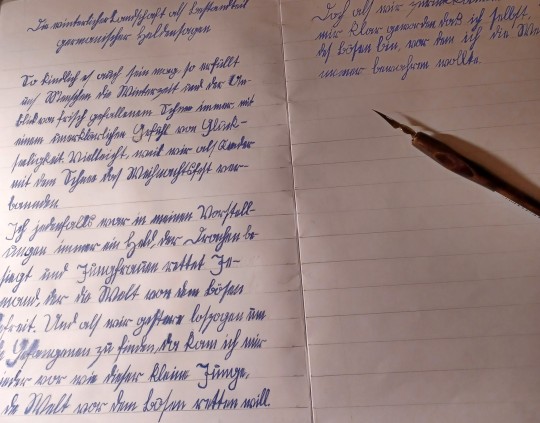 Die winterliche Landschaft als Bestandteil
germanischer Heldensagen
So kindlich es auch sein mag, so erfüllt
uns Menschen die Winterzeit und der An-
blick von frisch gefallenem Schnee immer mit
einem merkwürdigen Gefühl von Glück-
seeligkeit. Vielleicht, weil wir als Kinder
mit dem Schnee das Weihnachtsfest ver-
banden.
Ich jedenfalls war in meinen Vorstell-
ungen immer ein Held, der Drachen be-
siegt und Jungfrauen rettet. Je-
mand, der die Welt von dem bösen
befreit. Und als wir gestern loszogen um
die Gefangenen zu finden, da kam ich mir
wieder vor wie dieser kleine Junge,
der die Welt vor dem bösen retten will.
Doch als wir
mir klar geworden daß ich selbst,
das bösen bin, vor dem ich die We
immer bewahren wollte.